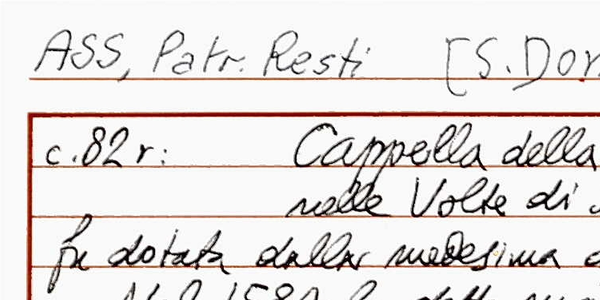 ASS, Patr. Resti [S. Dom
c. 82 r: Cappella della
nelle Volte di
fu dotata dalla medesima